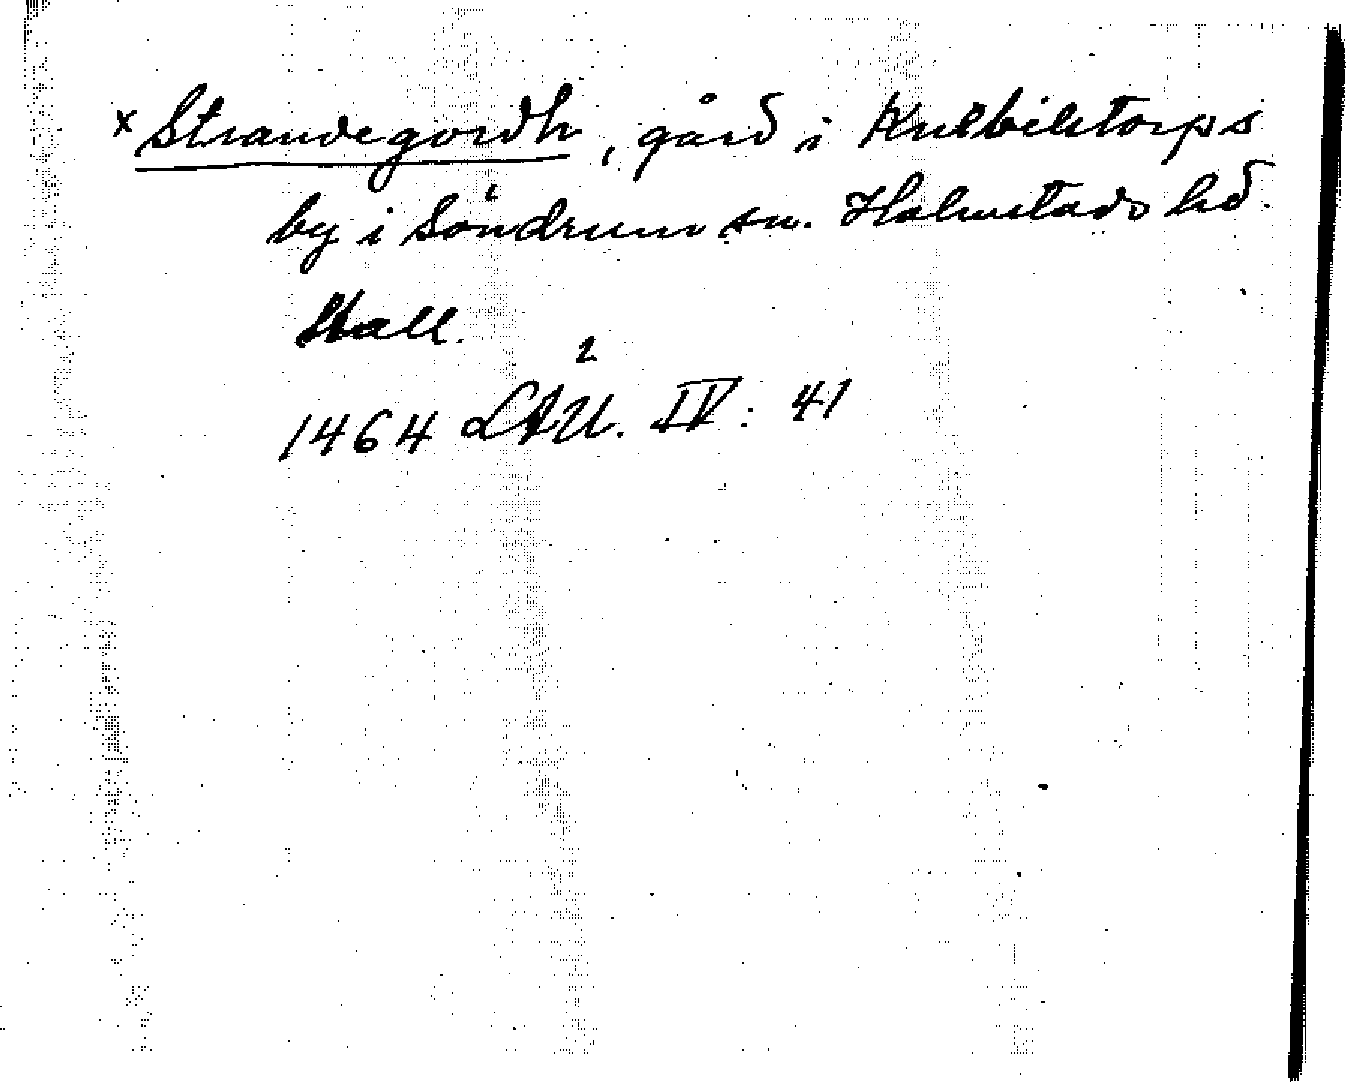 x Strandegordh, gård i Kulbilstorps
by i Söndrum sn. Halmstads hd.
Hall.
1464 LAU.² IV: 41